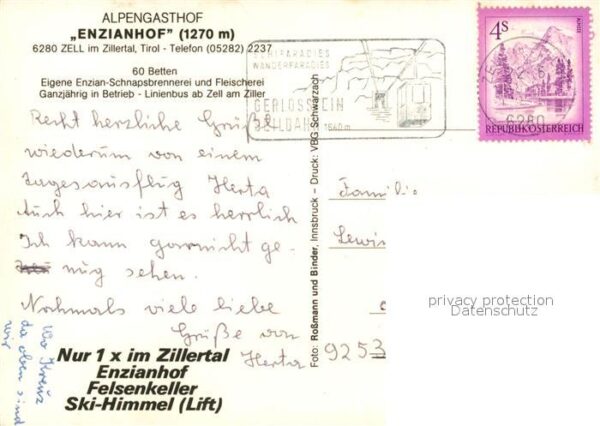 ALPENGASTHOF
„ENZIANHOF" (1270 m)
6280 ZELL im Zillertal, Tirol - Telefon (05282) 2237
60 Betten
Eigene Enzian-Schnapsbrennerei und Fleischerei
Ganzjährig in Betrieb - Linienbus ab Zell am Ziller
SKIPARADIES
WANDERPARADIES
GERLOSSTEIN
SEILBAHN 1640 m
4S
REPUBLIK ÖSTERREICH
6280
Recht herzliche Grüße
wiederum von einem
Tagesausflug Herta
Auch hier ist es herrlich
Ich kann garnicht ge-
nüg sehen.
Nochmals viele liebe
Grüße von
Herta
Wo Kreuz
da oben sind
wir
Nur 1 x im Zillertal
Enzianhof
Felsenkeller
Ski-Himmel (Lift)
Foto: Roßmann und Binder, Innsbruck - Druck: VBG Schwarzach
Familie
Lewis
9253
privacy protection
Datenschutz